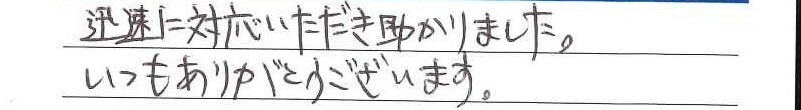 迅速に対応いただき助かりました。
いつもありがとうございます。